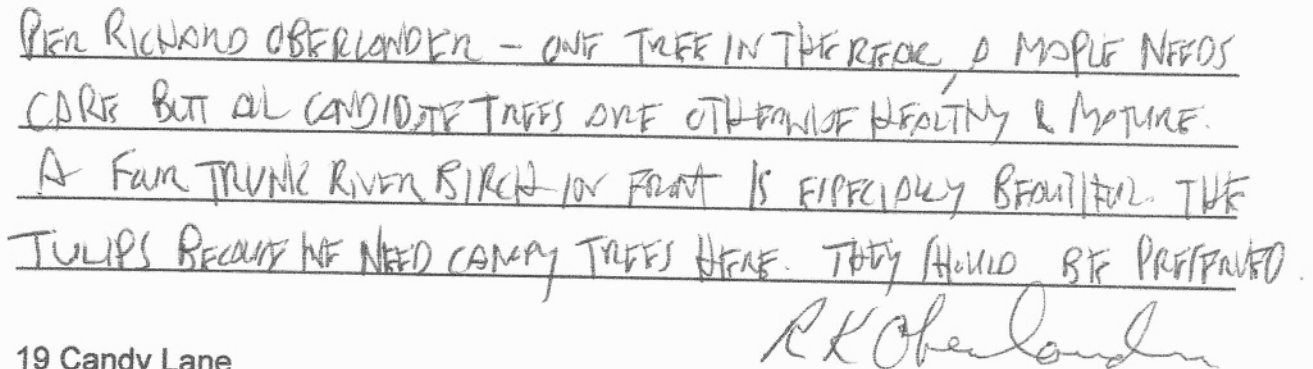 PER RICHARD OBERLANDER - ONE TREE IN THE REAR, A MAPLE NEEDS
CARE BUT ALL CANDIDATE TREES ARE OTHERWISE HEALTHY & MATURE.
A FOUR TRUNK RIVER BIRCH IN FRONT IS ESPECIALLY BEAUTIFUL. THE
TULIPS BECAUSE WE NEED CANOPY TREES HERE. THEY SHOULD BE PRESERVED.
R K Oberlander
19 Candy Lane